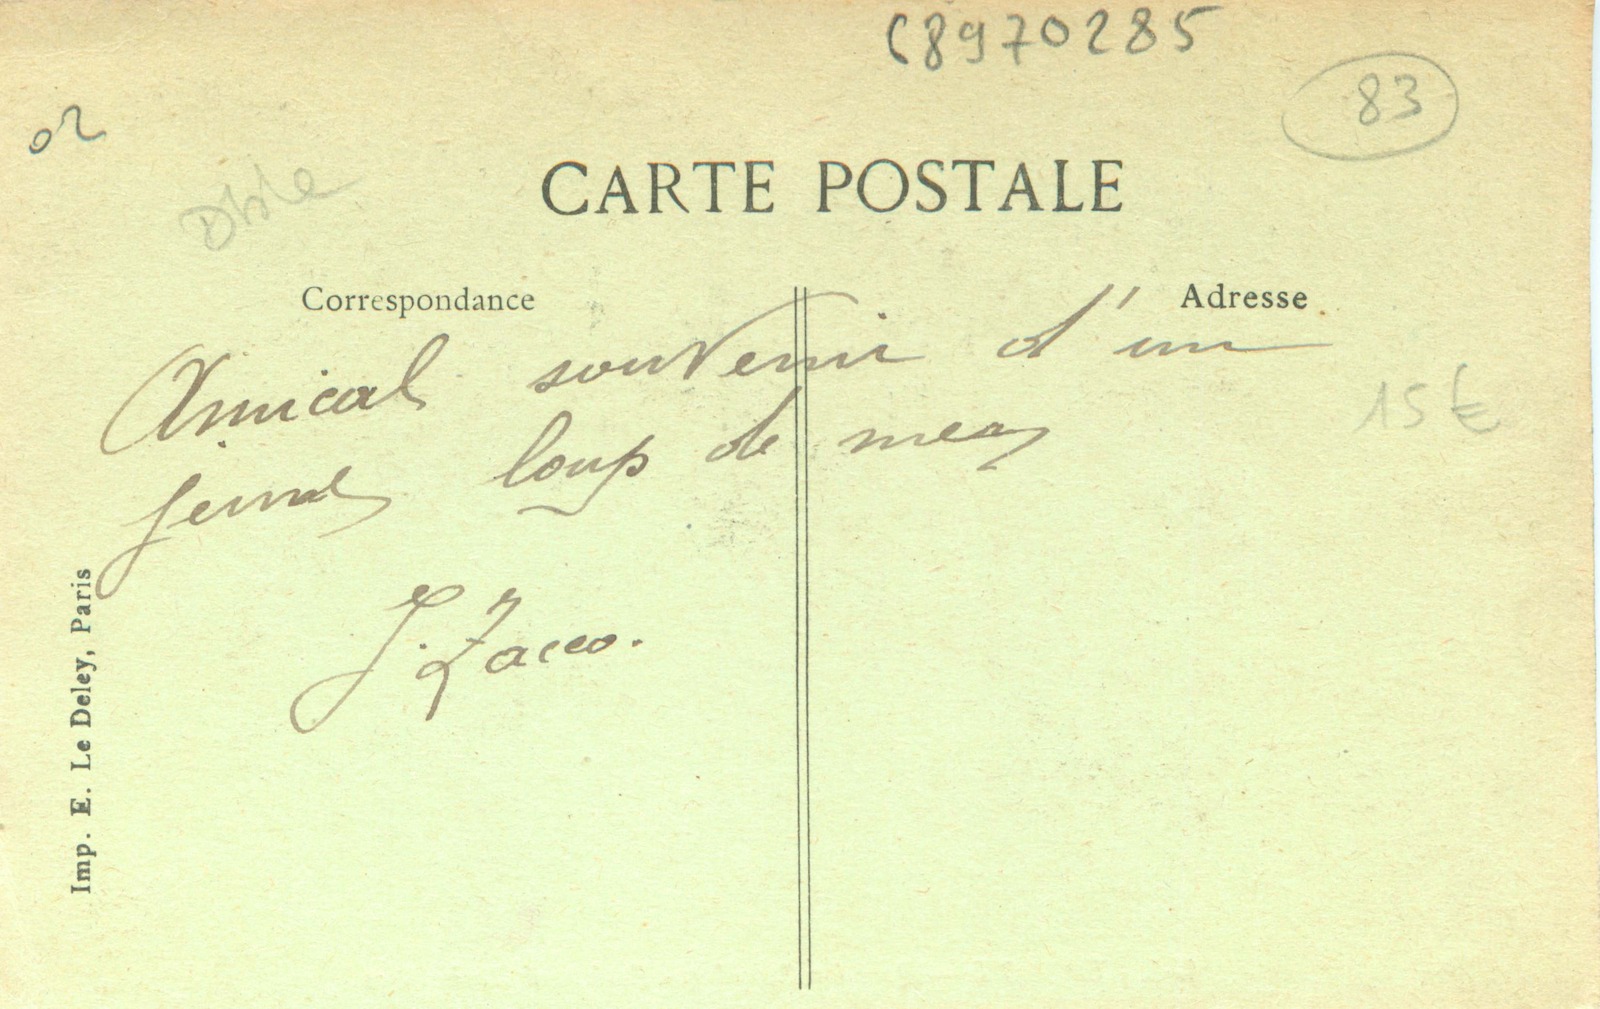 68970285
83
02
CARTE POSTALE
Correspondance
Adresse
Amical souvenir d'un
jeune loup de mer
15 €
J. Zacco.
Imp. E. Le Deley, Paris